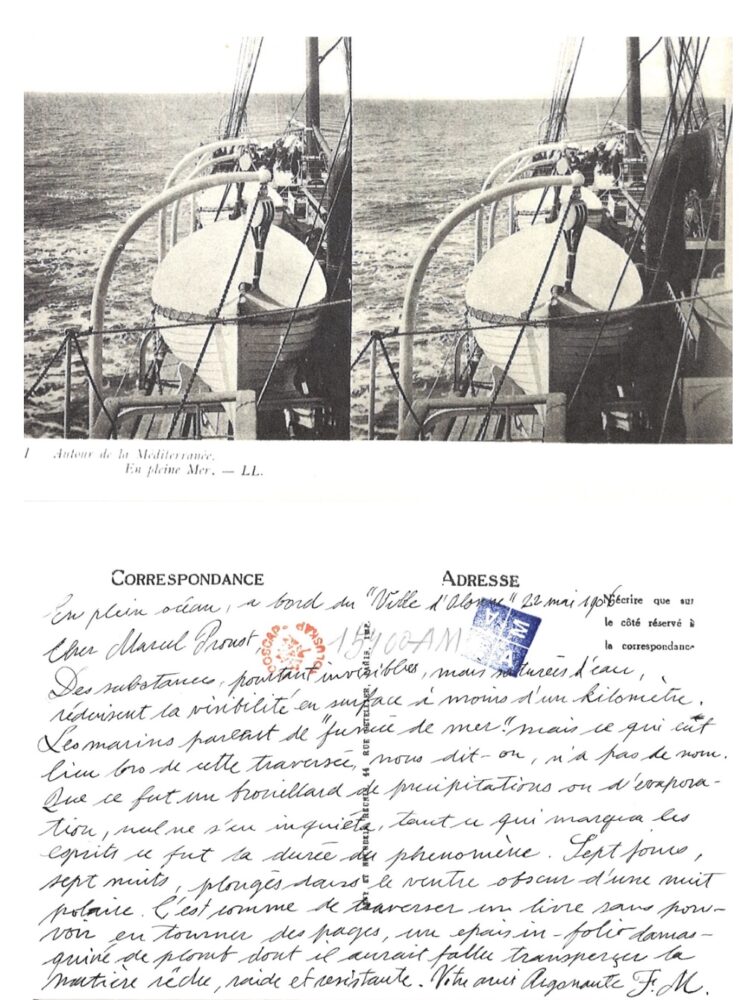 1 Autour de la Mediterranée.
En pleine Mer. — LL.
CORRESPONDANCE
ADRESSE
N'écrire que sur
le côté réservé à
la correspondance
En plein océan, a bord du "Ville d'Olonne" 22 mai 1906
Cher Marcel Proust,
15400AM
Des substances, pourtant invisibles, mais saturées d'eau,
réduisent la visibilité en surface à moins d'un kilomètre.
Les marins parlent de "fumée de mer" mais ce qui eût
lieu lors de cette traversée, nous dit-on, n'a pas de nom.
Que ce fut un brouillard de précipitations ou d'évapora-
tion, nul ne s'en inquiéta, tant ce qui marqua les
esprits ce fut la durée du phenomène. Sept jours,
sept nuits, plongés dans le ventre obscur d'une nuit
polaire. C'est comme de traverser un livre sans pou-
voir en tourner des pages, un épais in-folio damas-
quiné de plomb dont il aurait fallu transpercer la
matière rêche, raide et résistante. Votre ami Argonaute F. M.